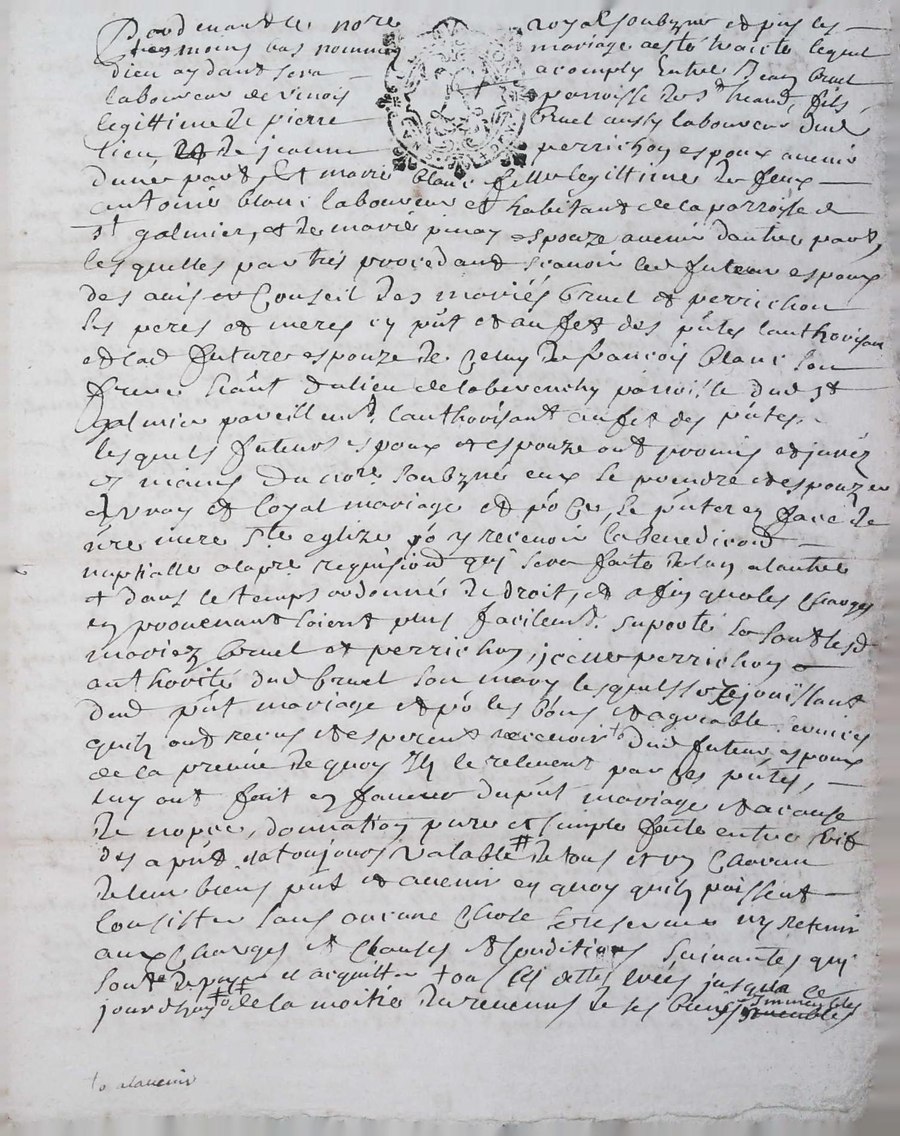 Pardevant le nore royal soubzne et puis les
tesmoins bas nommes mariage a esté traicté lequel
dieu aydant sera acomply Entre Jean bruel
laboureur de vinois parroisse de st heand, fils
legittime de pierre bruel aussy laboureur dud
lieu, et de jeanne perrichon espoux avenir
dune part, Et marie blanc fille legittime de feux
antoine blanc laboureur et habitant de la parroisse de
st galmier, et de marie pinay espouze avenir dautre part,
les quelles parties procedant scavoir led futeur espoux
des avis et Conseil des mariés bruel et perrichon
ses peres et meres cy pnt et au fet des pntes lauthorisan
et lad future espouze de Celuy de francois blanc son
frere du lieu de laberenchy parroisse dud st
galmier pareillemt lauthorisant au fet des pntes,
lesquels futeurs espoux et espouze ont promis et jurez
es mains du nore soubzné eux se prendre et espouzer
en vray et loyal mariage et po Ce, se pnter en face de
nre mere ste eglize po y recevoir la benediction
nuptialle a la pre requision qui sera faite de lun a lautre
+ dans le temps ordonné de droit, et afin que les charges
en provenant soient plus facilemt suporté se sont lesd
mariez bruel et perrichon, icelle perrichon
authorité dud bruel son mary lesquels se rejouissant
dud pnt mariage et po les bons et agreable services
quils ont recus et esperent recevoir to dud futeur espoux
de la preuve de quoy Ils le relevent par Ces pntes,
luy ont fait en faveur du pnt mariage et a cause
de nopce, donnation pure et simple faite entre vifs
des a pnt et a toujours valable # de tous et un Chacun
de leur biens pnt et avenir en quoy quils puissent
Consister sans aucune Chose se reserver ny retenir
aux Charges et Clauses et Conditions suivantes qui
sont de payer et acquitter tous les dettes crées jusqua ce
jourdhuy de la moitié du revenus de ses biens immeubles
to alavenir